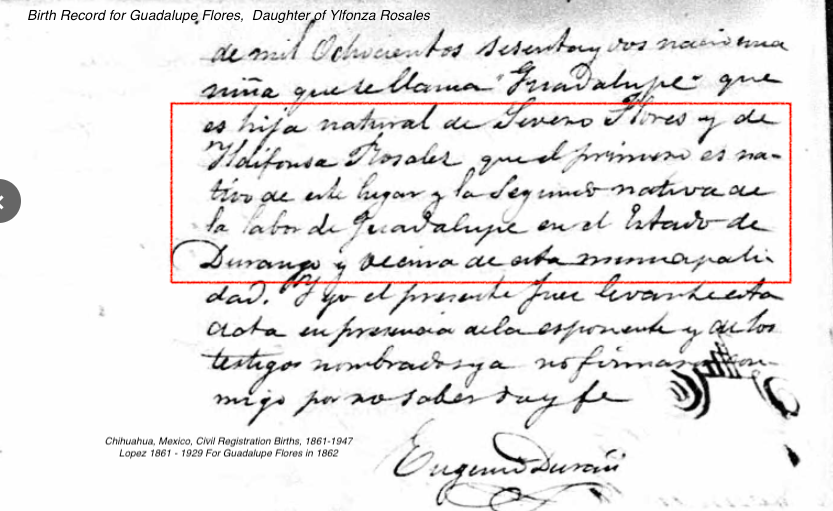 Birth Record for Guadalupe Flores, Daughter of Ylfonza Rosales
de mil Ochocientos sesenta y dos nacio una
niña que se llama "Guadalupe" que
es hija natural de Severo Flores y de
Ildifonsa Rosales que el primero es na-
tivo de este lugar y la Segunda nativa de
la labor de Guadalupe en el Estado de
Durango y vecina de esta municipali-
dad. Y yo el presente Juez levante esta
acta en presencia de la esponente y de los
testigos nombrados ya no firmaron con-
migo por no saber doy fe
Eugenio Durán
Chihuahua, Mexico, Civil Registration Births, 1861-1947
Lopez 1861 - 1929 For Guadalupe Flores in 1862